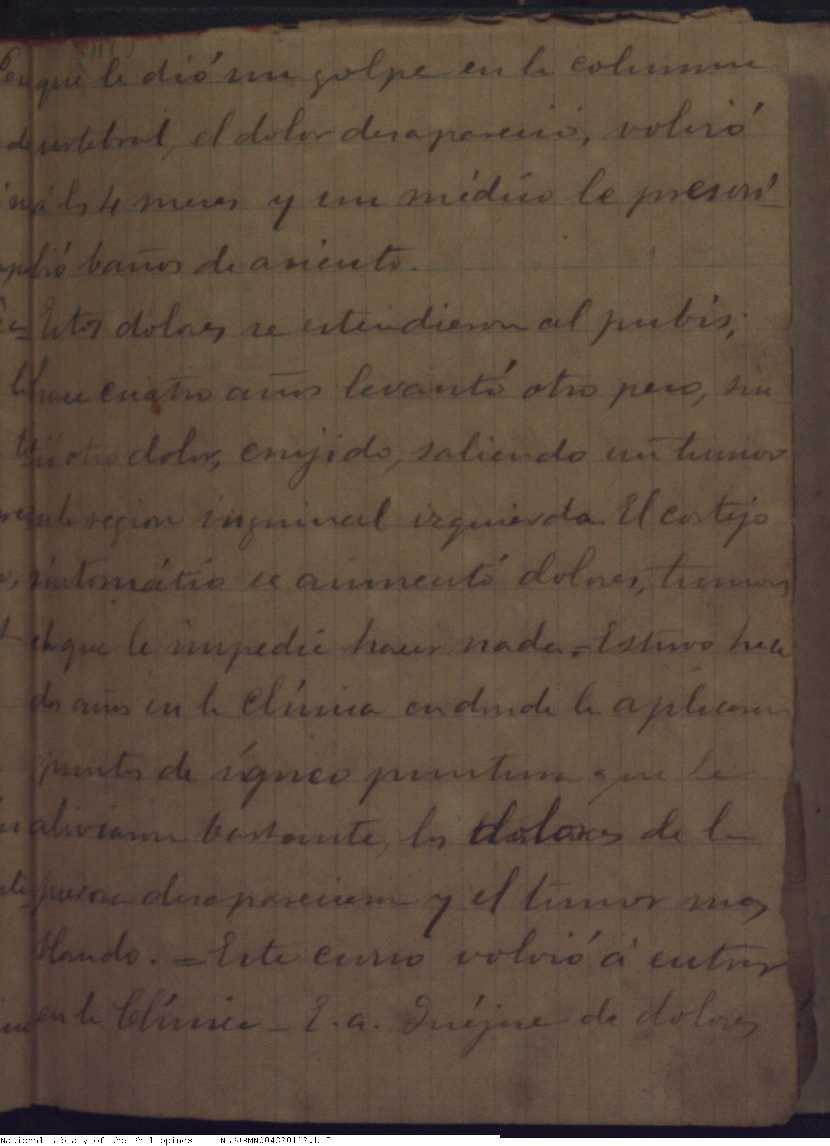 que le dió un golpe en la columna
vertebral, el dolor desapareció, volvió
á los 4 meses y un médico le prescri-
bió baños de asiento.
Estos dolores se estendieron al pubis;
hace cuatro años levantó otro peso, sin
tió otro dolor, crujido, saliendo un tumor
en la region inguinal izquierda El cortejo
sintomático se aumentó dolores, tumores
que le impedia hacer nada. = Estuvo hace
dos años en la Clínica en donde le aplicaron
puntos de ígneo puntura que le
aliviaron bastante, los dolores de la
pierna desaparecieron y el tumor mas
blando. = Este curso volvió á entrar
en la Clínica _ E. a. Quéjase de dolores
National Library of the Philippines